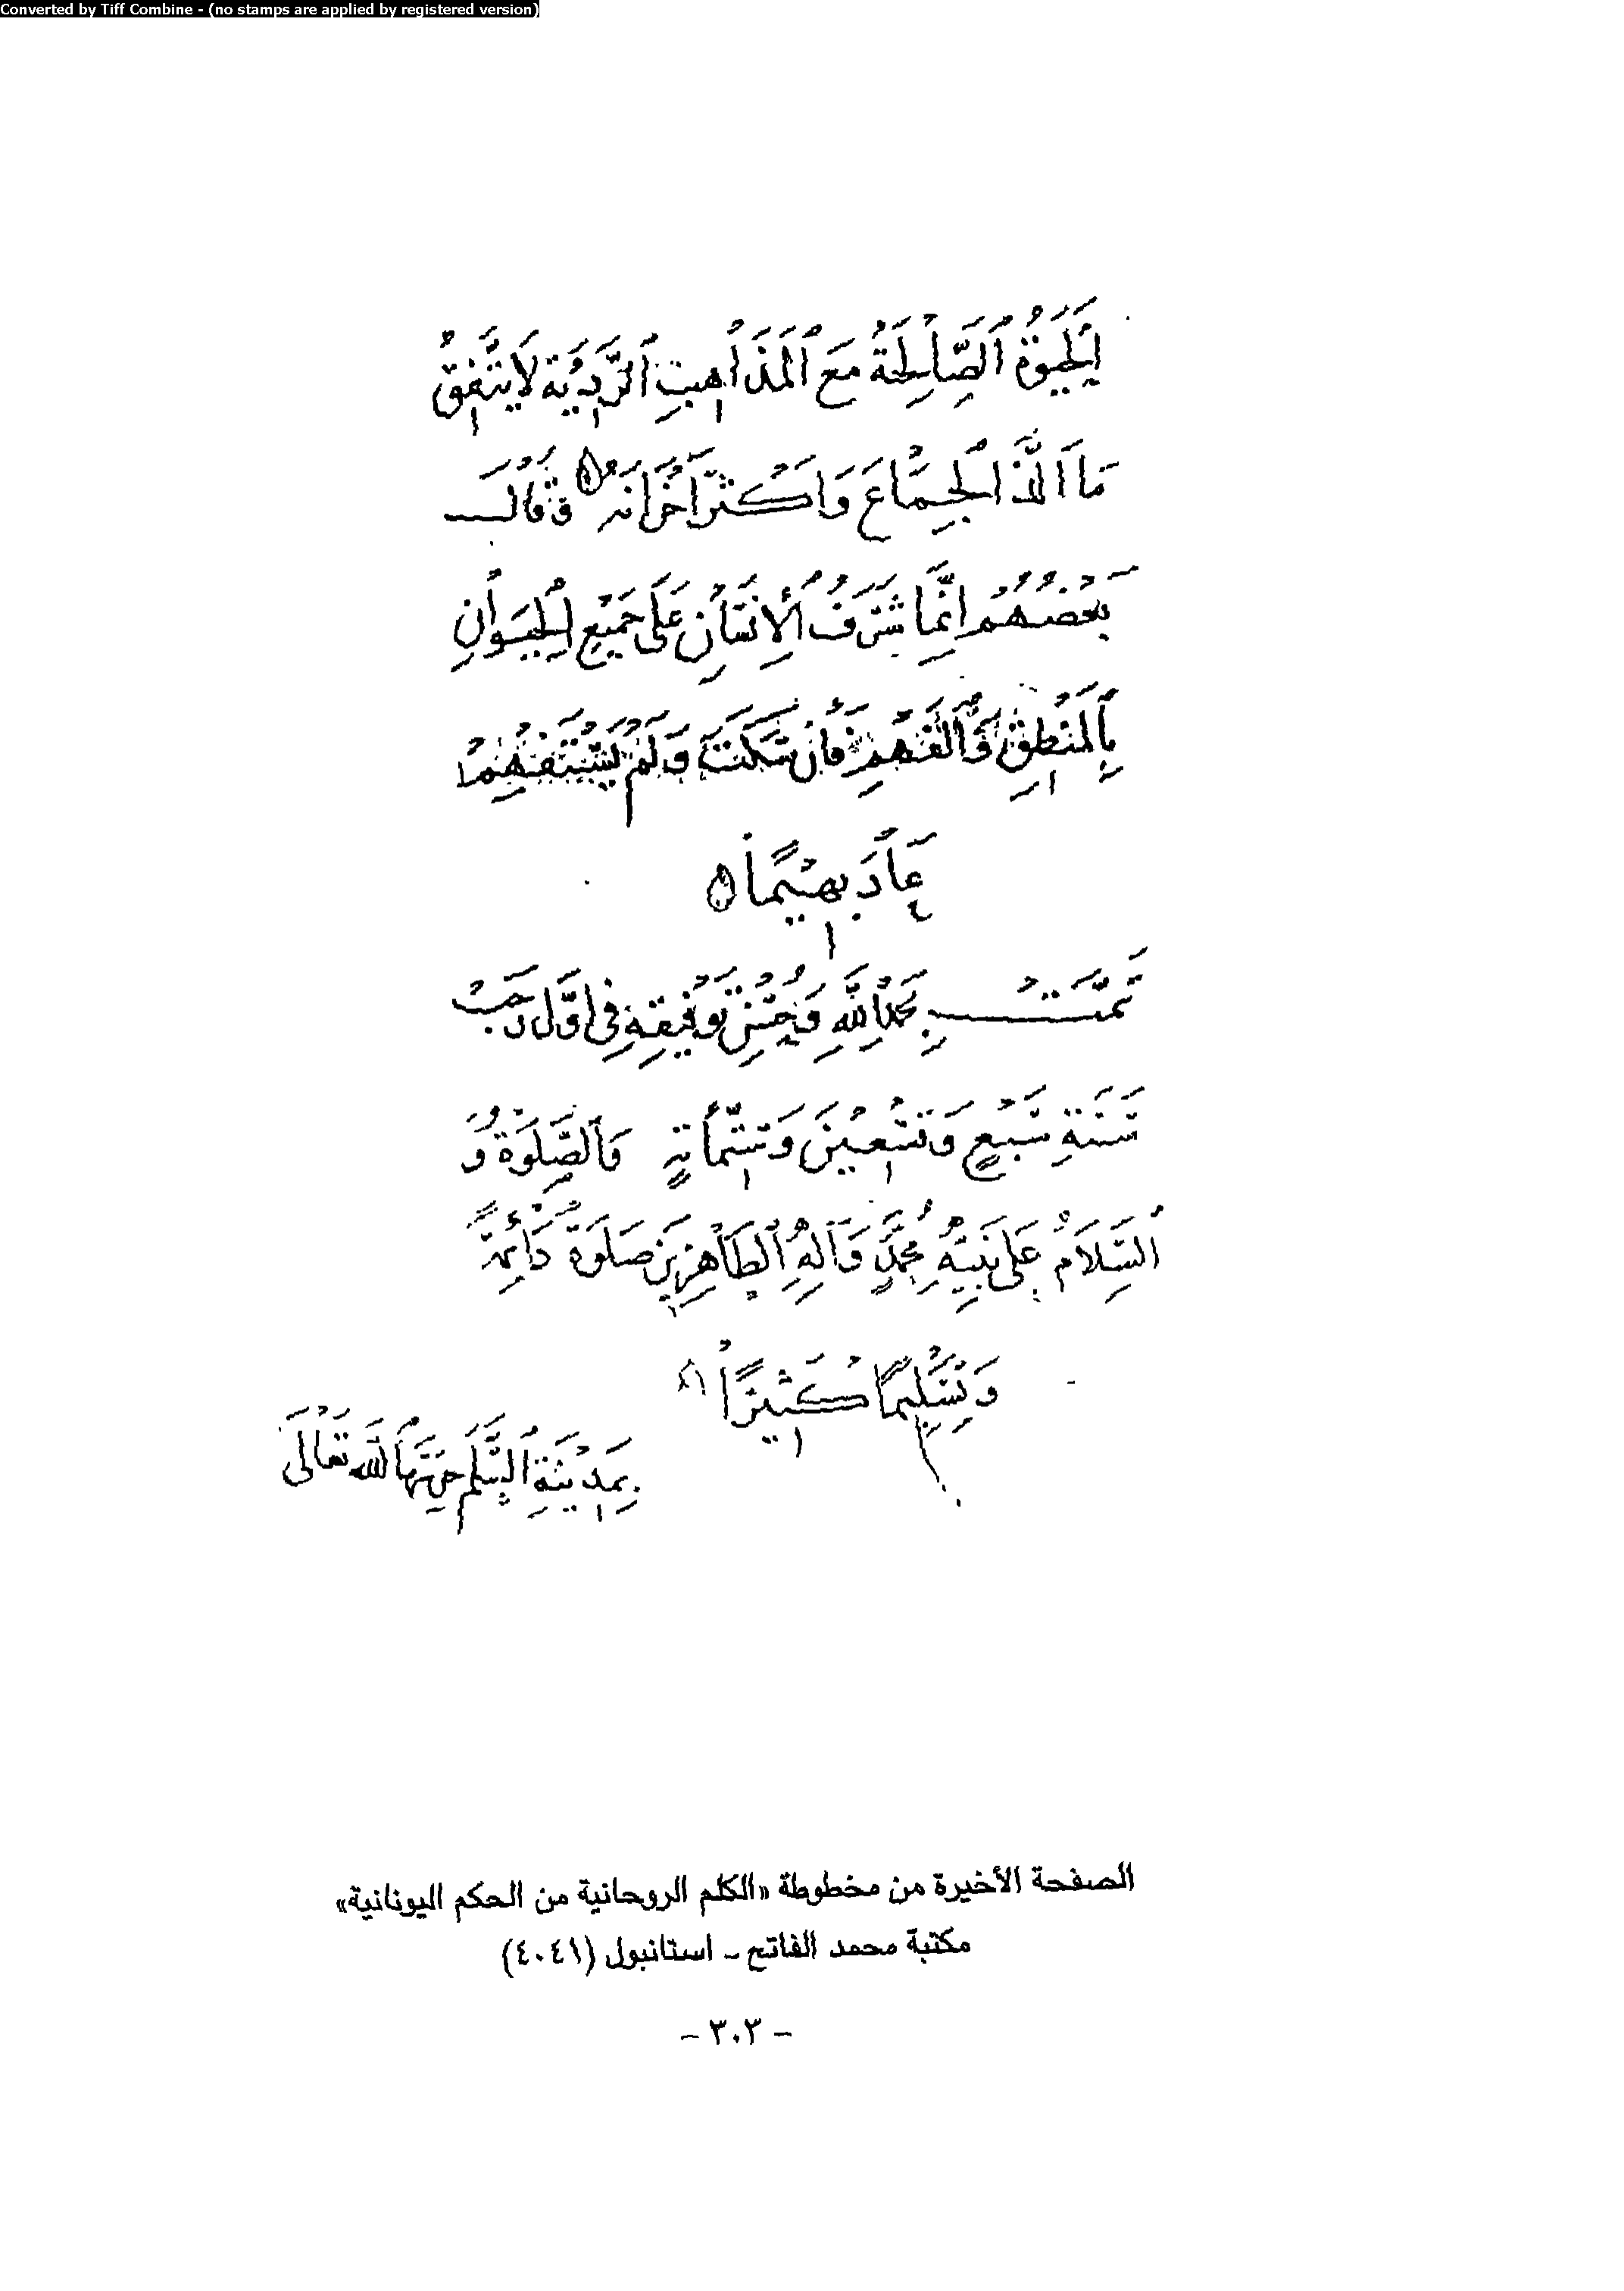 Converted by Tiff Combine - (no stamps are applied by registered version)
اَلْحَيٰوةُ اَلصَّالِحَةُ مَعَ اَلْمَذَاهِبِ اَلرَّدِيَّةِ لَا يَتَّفِقُ
مَا اَلَذَّ اَلْجِمَاعَ وَاَكْثَرَ اَحْزَانَهُ ۞ وَقَالَ
بَعْضُهُمْ اِنَّمَا شَرَفُ اَلْاِنْسَانِ عَلَى جَمِيْعِ اَلْحَيَوَانِ
بِالْمَنْطِقِ وَاَلْفَهْمِ فَاِنْ سَكَتَ وَلَمْ يَسْتَفْهِمْ
عَادَ بَهِيْمًا ۞
تَمَّتْ بِحَمْدِ اللّٰهِ وَحُسْنِ تَوْفِيْقِهِ فِي اَوَّلِ رَجَبْ
سَنَةِ سَبْعٍ وَتِسْعِيْنَ وَسِتِّمِائَةٍ وَالصَّلٰوةُ وَ
اَلسَّلَامُ عَلَى نَبِيِّهِ مُحَمَّدٍ وَآلِهِ اَلطَّاهِرِيْنَ صَلٰوةً دَائِمَةً
وَتَسْلِيْمًا كَثِيْرًا
بِمَدِيْنَةِ السَّلَمِ حَمَاهَا اللّٰه تَعَالَى
الصفحة الأخيرة من مخطوطة «الكلم الروحانية من الحكم اليونانية»
مكتبة محمد الفاتح - استانبول (٤٠٤١)
- ٣٠٣ -